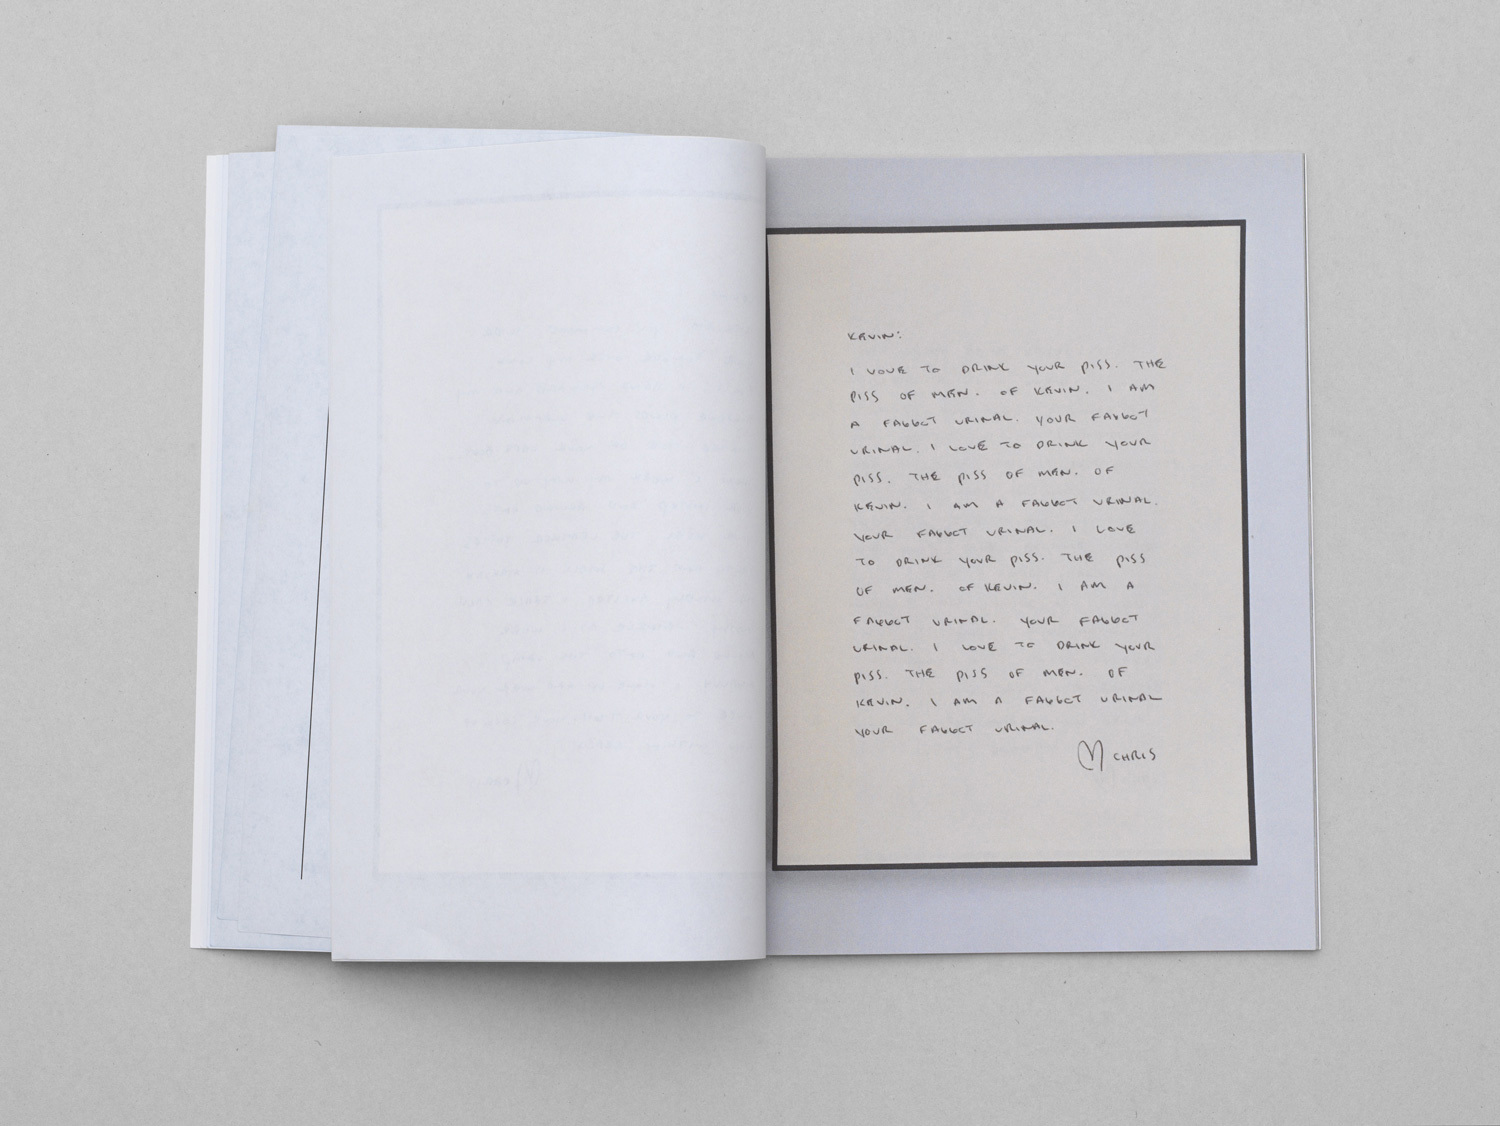 KEVIN:
I LOVE TO DRINK YOUR PISS. THE
PISS OF MEN. OF KEVIN. I AM
A FAGGOT URINAL. YOUR FAGGOT
URINAL. I LOVE TO DRINK YOUR
PISS. THE PISS OF MEN. OF
KEVIN. I AM A FAGGOT URINAL.
YOUR FAGGOT URINAL. I LOVE
TO DRINK YOUR PISS. THE PISS
OF MEN. OF KEVIN. I AM A
FAGGOT URINAL. YOUR FAGGOT
URINAL. I LOVE TO DRINK YOUR
PISS. THE PISS OF MEN. OF
KEVIN. I AM A FAGGOT URINAL
YOUR FAGGOT URINAL.
CHRIS